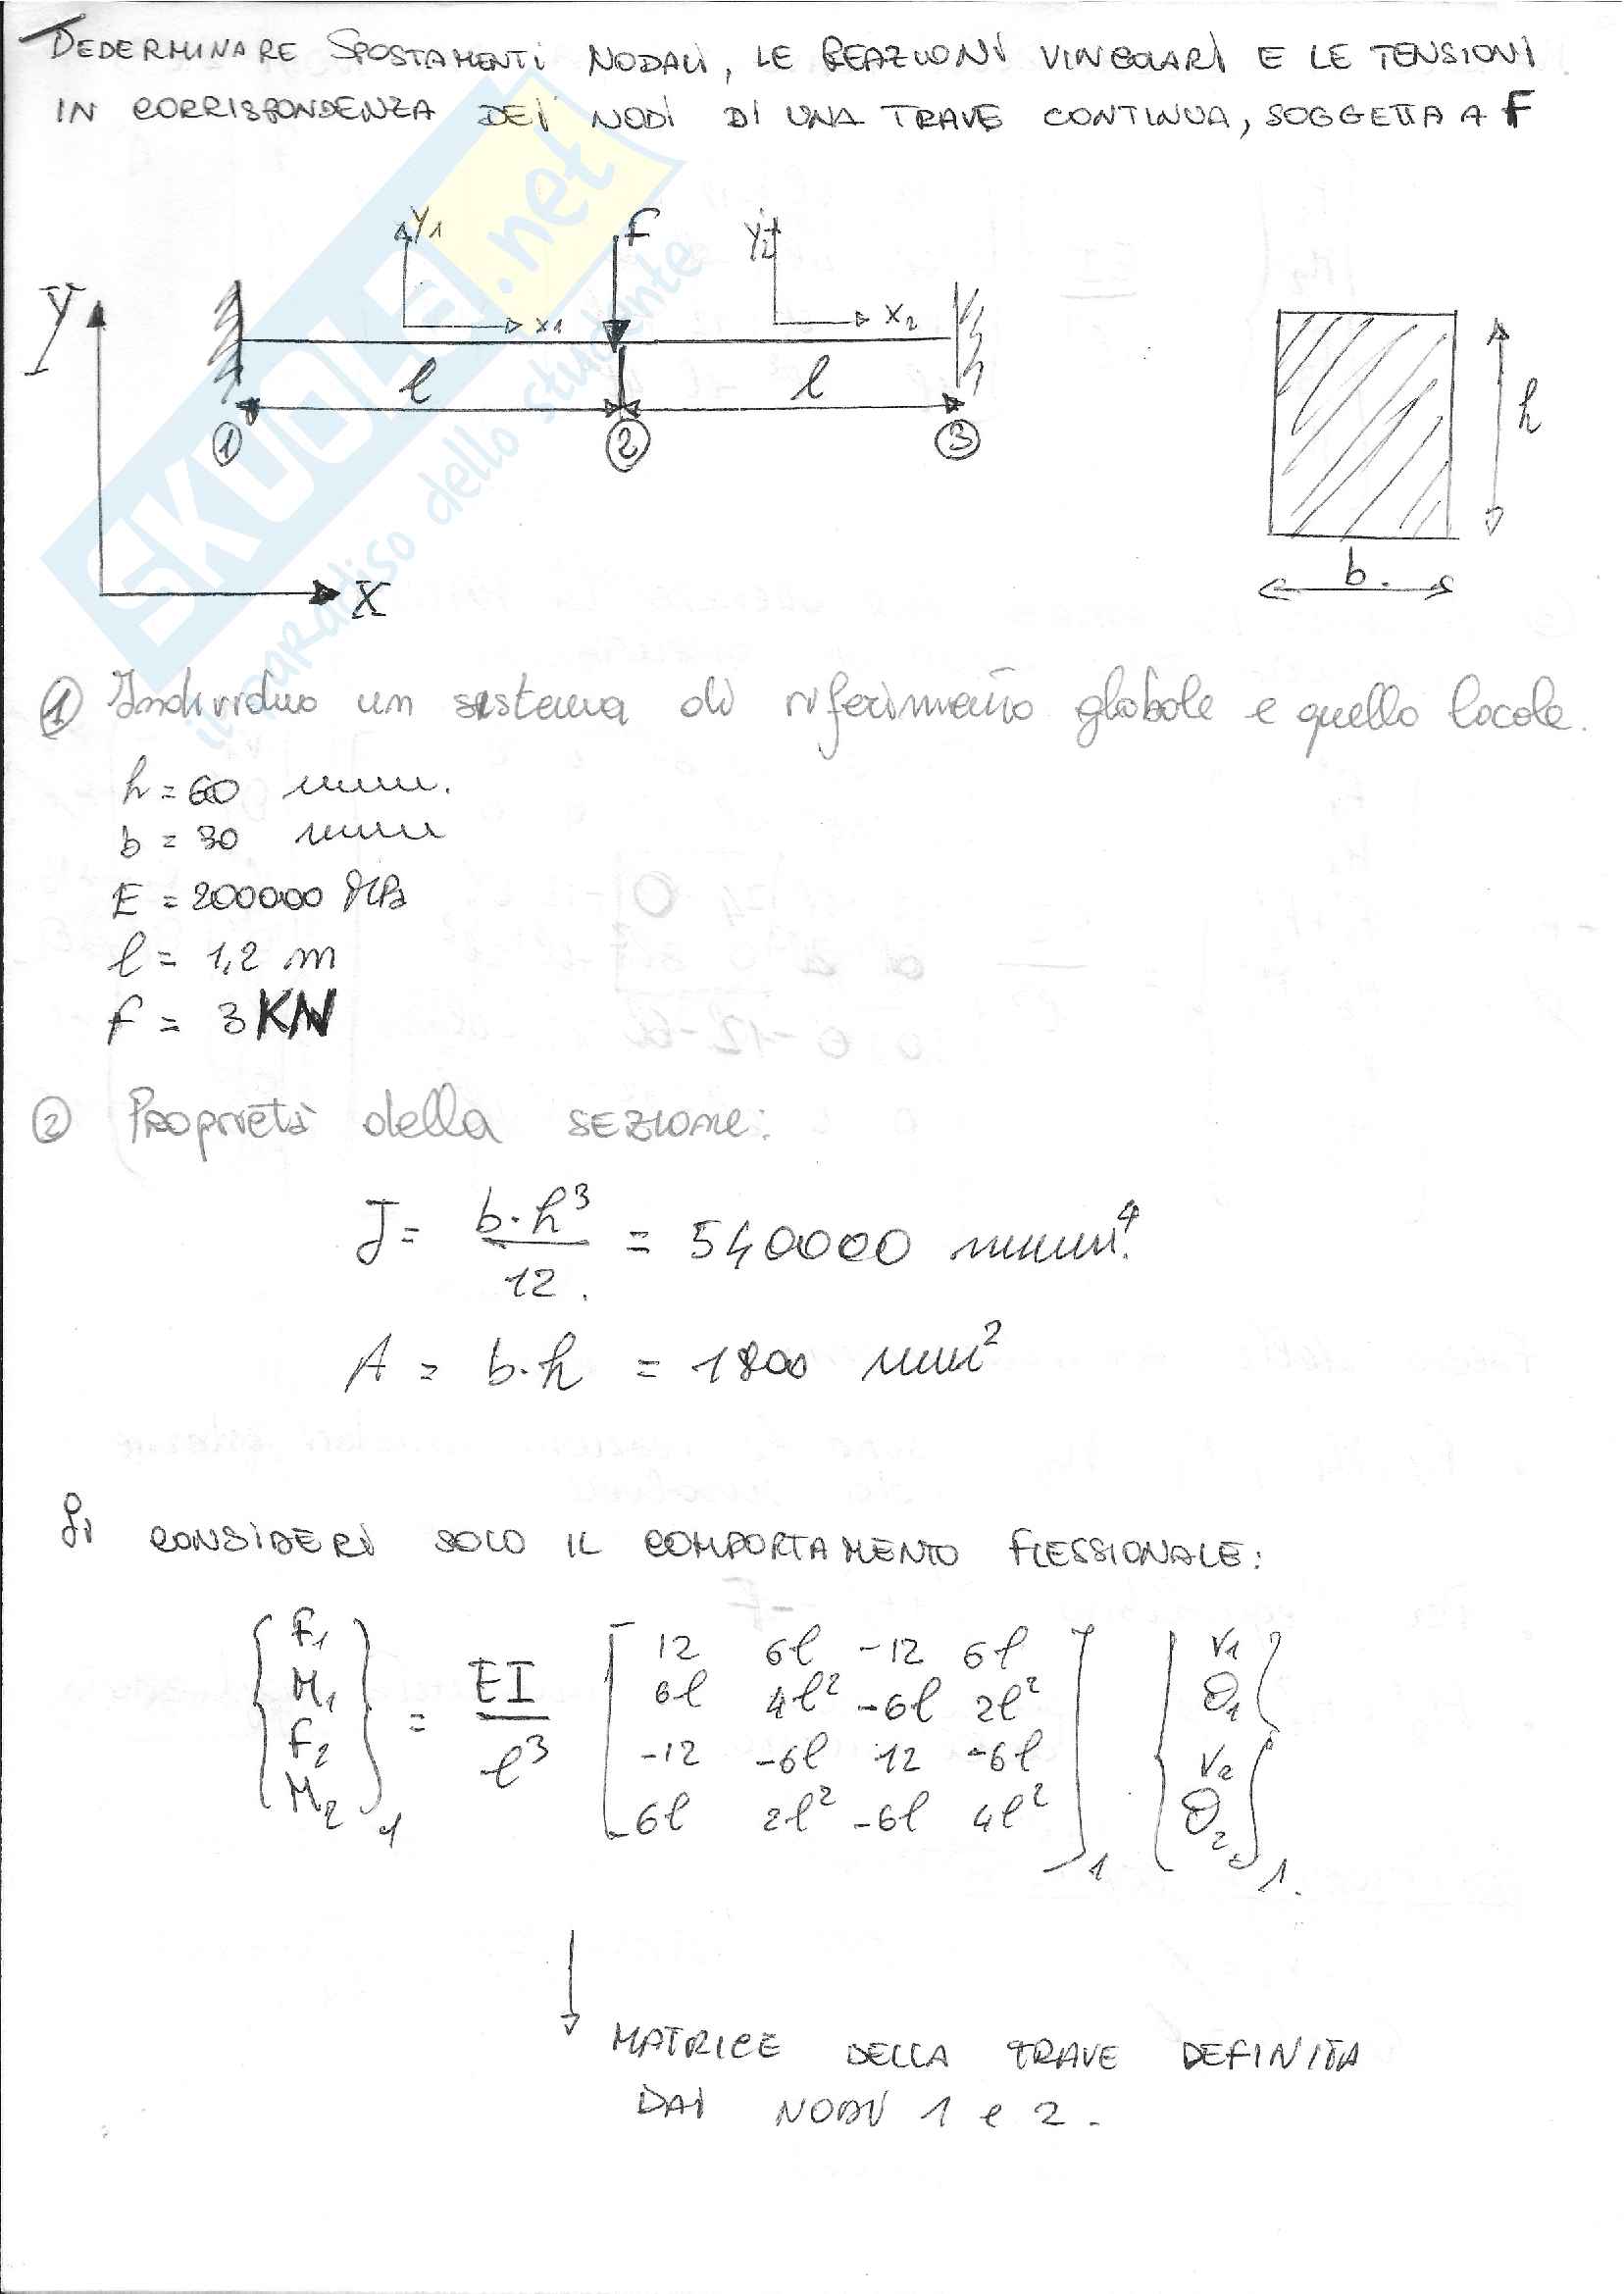 DEDERMINARE SPOSTAMENTI NODALI, LE REAZIONI VINCOLARI E LE TENSIONI
IN CORRISPONDENZA DEI NODI DI UNA TRAVE CONTINUA, SOGGETTA A F
Y
y1
x1
F
y2
x2
l
l
1
2
3
X
h
b.
SKUOLA.net
il paradiso dello studente
① Individuo un sistema di riferimento globale e quello locale.
h = 60 mm.
b = 30 mm
E = 200000 MPa
l = 1,2 m
F = 3 KN
② Proprietà della SEZIONE:
J = b·h³/12. = 540000 mm⁴.
A = b·h = 1800 mm²
Si CONSIDERI SOLO IL COMPORTAMENTO FLESSIONALE:
{F1 M1 F2 M2}1 = EI/l³
12 6l -12 6l
6l 4l² -6l 2l²
-12 -6l 12 -6l
6l 2l² -6l 4l²
1
{v1 θ1 v2 θ2}1.
MATRICE DELLA TRAVE DEFINITA
DAI NODI 1 e 2.